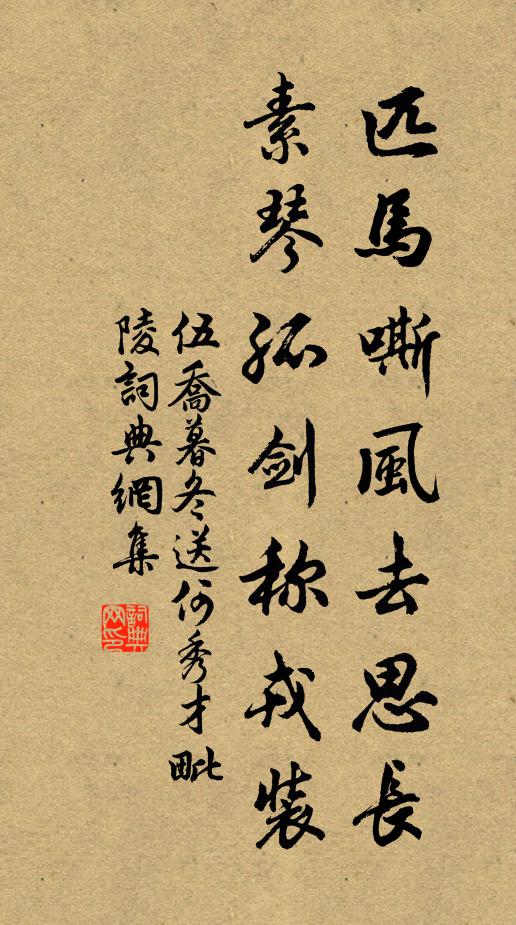 匹馬嘶風去思長
素琴孤劍称戎裝
伍喬暮冬送何秀才毗
陵詞典網集
詞典
网印